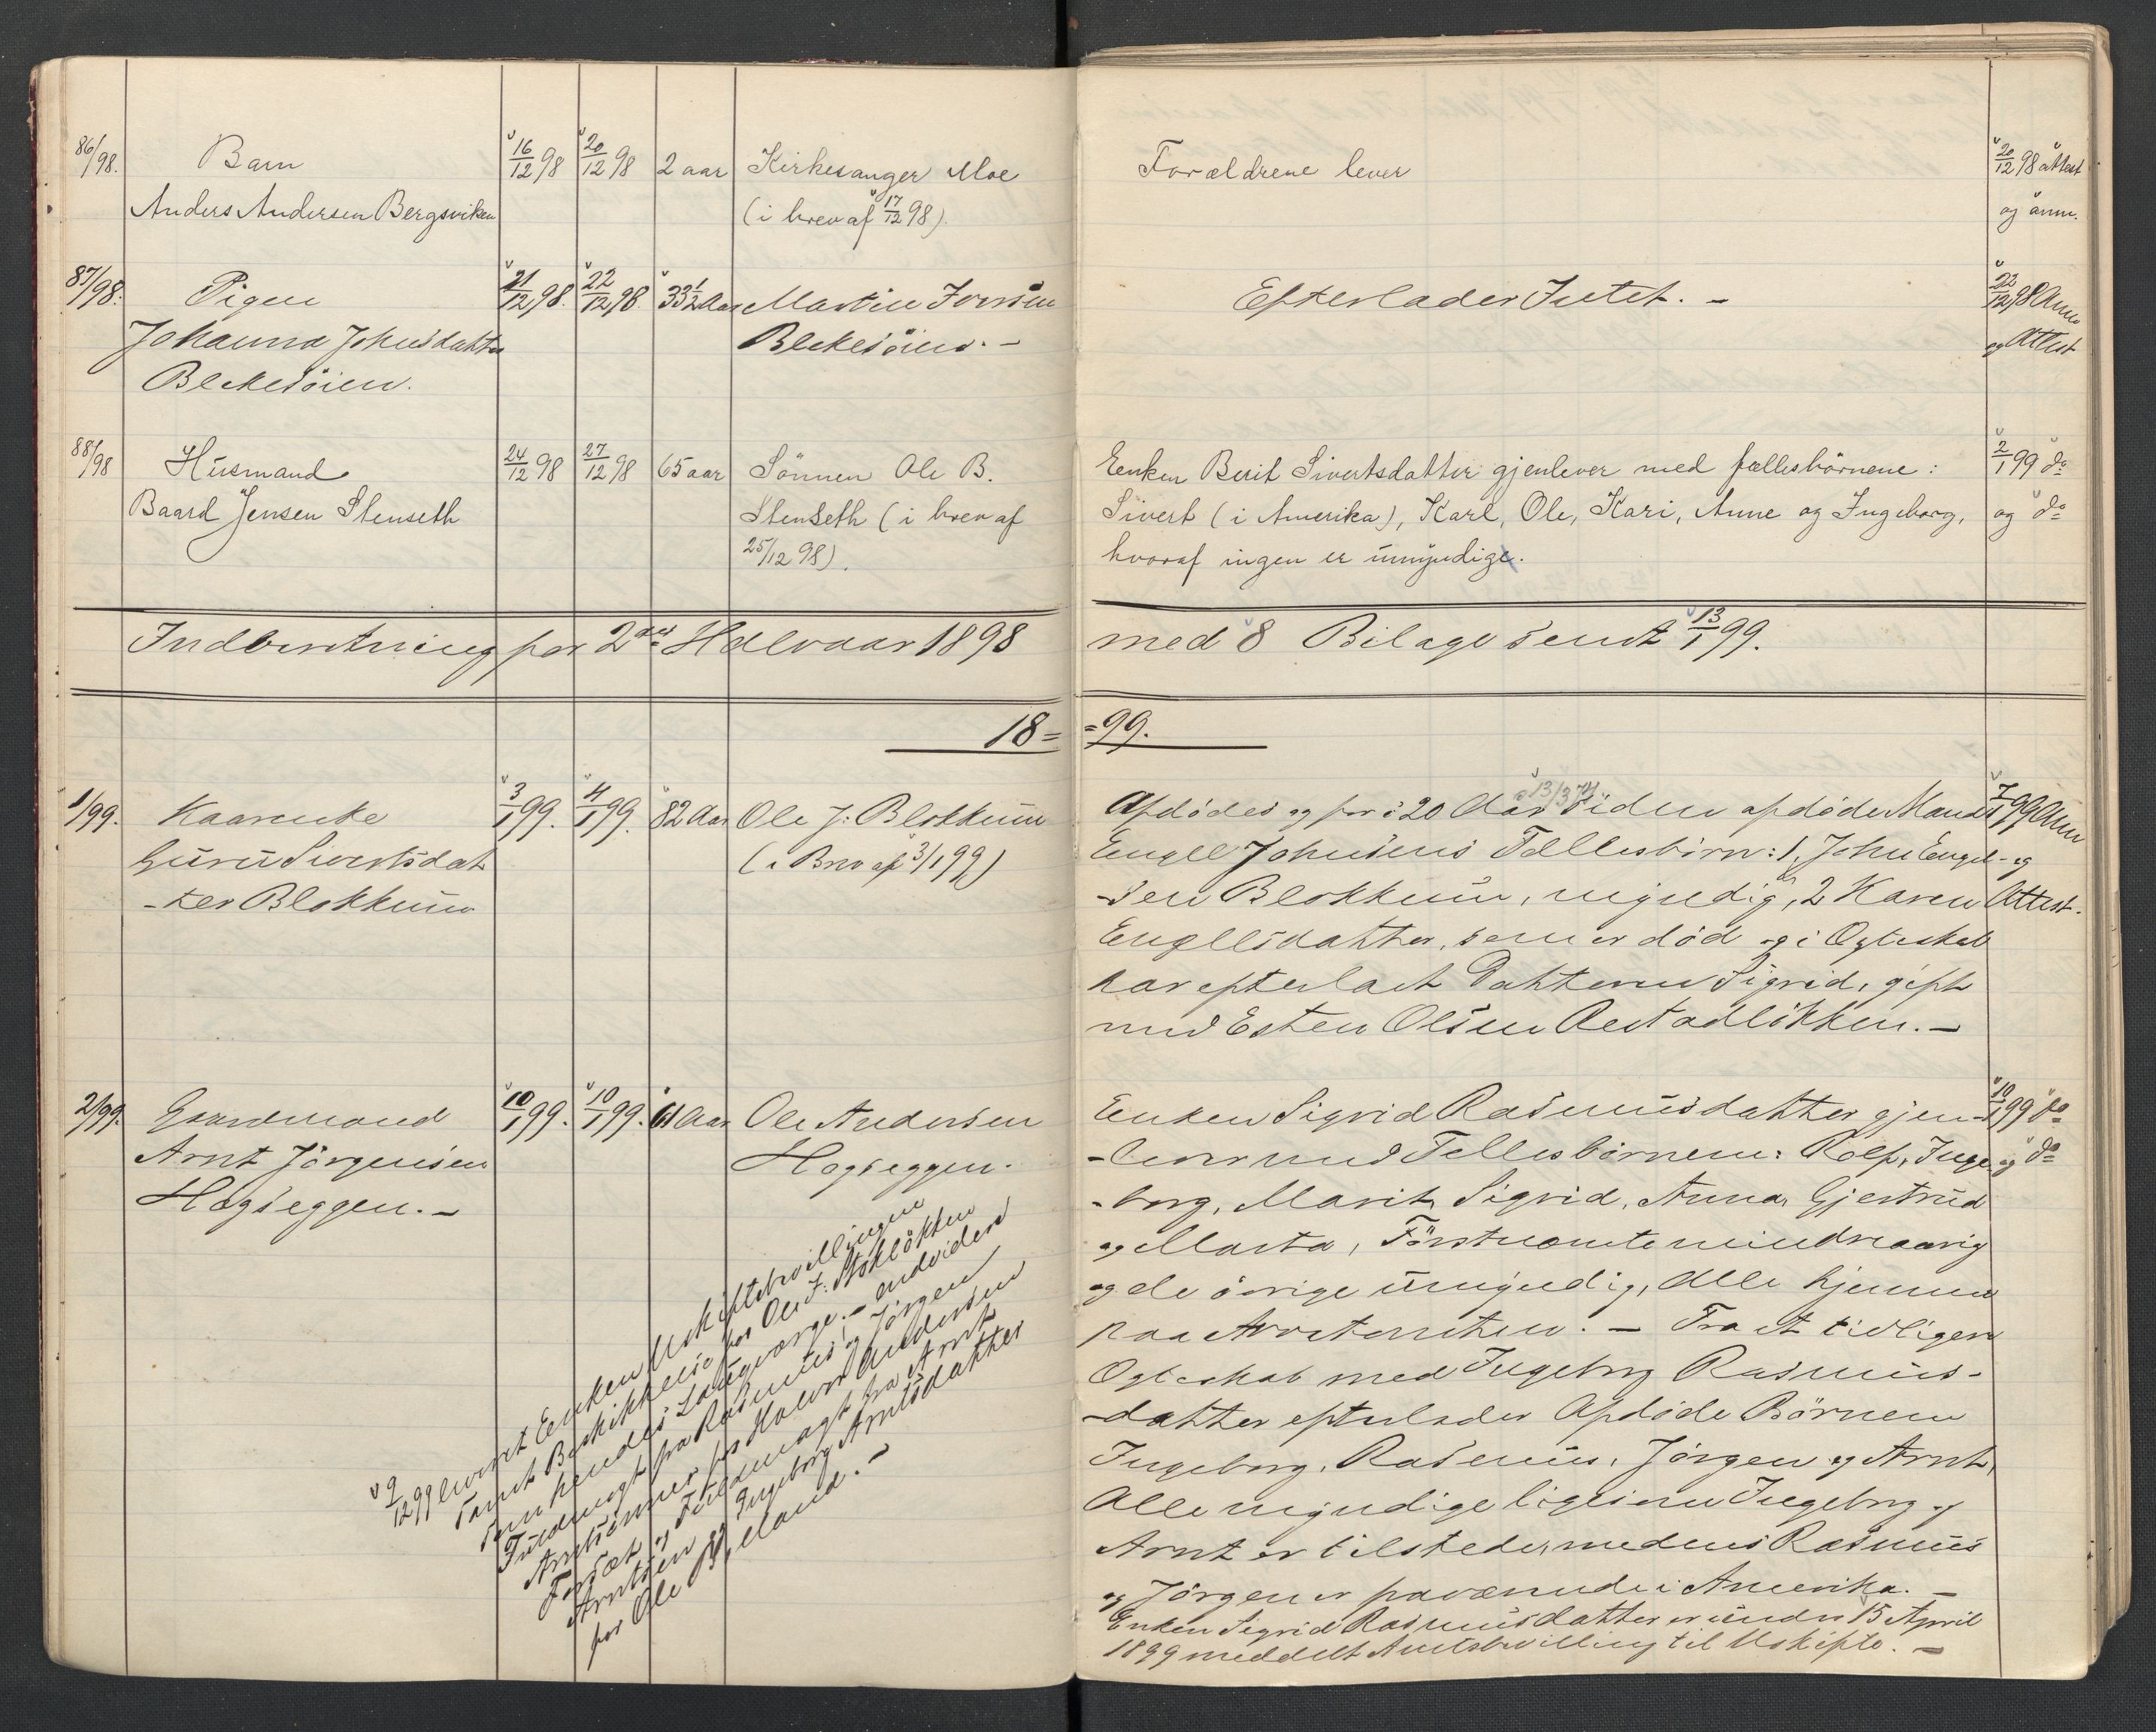 86/98. Barn 16/12 98 20/12 98 2 aar Kirkesanger Moe Forældrene lever 20/12 98 attest
Anders Andersen Bergsviken (i brev af 17/12 98). og anm.
87/98. Pigen 21/12 98. 22/12 98. 33 1/2 Aar Martin Joensen Efterlader Intet. – 22/12 98 Anm
Johanna Johnsdatter Blekesøien. – og Attest
Blekesøien.
88/98 Husmand 24/12 98 27/12 98 65 aar Sönnen Ole B. Enken Berit Sivertsdatter gjenlever med fællesbörnene: 2/1 99 do
Baard Jensen Stenseth Stenseth (i brev af Sivert (i Amerika), Karl, Ole, Kari, Anne og Ingeborg, og do
25/12 98). hvoraf ingen er umyndige.
Indberetning for 2det Halvaar 1898 med 8 Bilage sendt 13/1 99.
18= =99.
1/99. Kaarenke 3/1 99. 4/1 99. 82 Aar Ole J. Blokkum
Guru Sivertsdat (i Brev af 3/1 99)
-ter Blokkum
Afdødes og for i 20 Aar siden afdøde Mands 7/1 99 Anm
13/3 74
Engel Johnsens Fællesbörn: 1, John Engel- og
-sen Blokkum, myndig, 2 Karen Attest.
Engelsdatter, som er död og i Ægteskab
har efterladt Datteren Sigrid, gift
med Esten Olsen Restadløkken. –
2/99. Gaardmand 10/1 99. 10/1 99. 61 Aar Ole Andersen
Arnt Jörgensen Hogseggen.
Hogseggen. –
Enken Sigrid Rasmusdatter gjen- 10/1 99 do
-lever med Fellesbörnene: Rolf, Inge- og do
-borg, Marit, Sigrid, Anna, Gjertrud
og Marta, Förstnævnte mindreaarig
og de övrige umyndig, Alle hjemme
paa Arvetomten. – Fra et tidligere
Ægteskab med Ingeborg Rasmus-
-datter efterlader Afdøde Börnene
Ingeborg, Rasmus, Jörgen og Arnt,
Alle myndige ligesom Ingeborg og
Arnt er tilstede, medens Rasmus
og Jörgen er fraværende i Amerika. –
Enken Sigrid Rasmusdatter er under 15 April
1899 meddelt Amtsbevilling til Uskifte. –
9/12 99 leveret Enken Uskiftebevillingen
samt Beskikkelse for Ole J. Stokløkken
som hendes Laugværge. – endvidere
Fuldmagt fra Rasmus og Jörgen
Arntsönner for Halvor Andersen
Forset og Fuldmagt fra Arnt
Arntsen og Ingeborg Arntsdatter
for Ole B. Moand. –